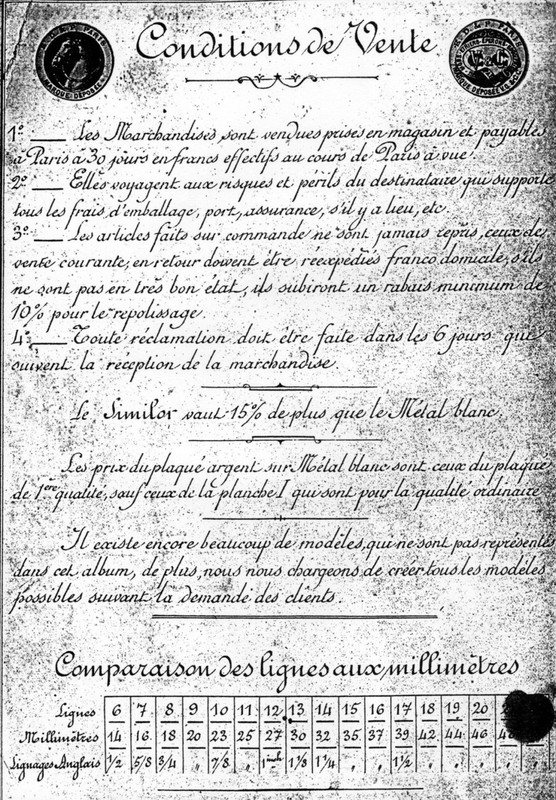 Conditions de Vente
1º — Les Marchandises sont vendues prises en magasin et payables
à Paris à 30 jours en francs effectifs au cours de Paris à vue.
2º — Elles voyagent aux risques et périls du destinataire qui supporte
tous les frais d'emballage, port, assurance, s'il y a lieu, etc
3º — Les articles faits sur commande ne sont jamais repris, ceux de
vente courante, en retour doivent être réexpédiés franco domicile, s'ils
ne sont pas en très bon état, ils subiront un rabais minimum de
10% pour le repolissage.
4º — Toute réclamation doit être faite dans les 6 jours qui
suivent la réception de la marchandise.
Le Similor vaut 15% de plus que le Métal blanc.
Les prix du plaqué argent sur Métal blanc sont ceux du plaqué
de 1ère qualité, sauf ceux de la planche I qui sont pour la qualité ordinaire
Il existe encore beaucoup de modèles, qui ne sont pas représentés
dans cet album, de plus, nous nous chargeons de créer tous les modèles
possibles suivant la demande des clients.
Comparaison des lignes aux millimètres
Lignes 6 7 8 9 10 11 12 13 14 15 16 17 18 19 20
Millimètres 14 16 18 20 23 25 27 30 32 35 37 39 42 44 46
Lignages Anglais 1/2 5/8 3/4 " 7/8 " 1 inch 1 1/8 1 1/4 " " 1 1/2 " " "